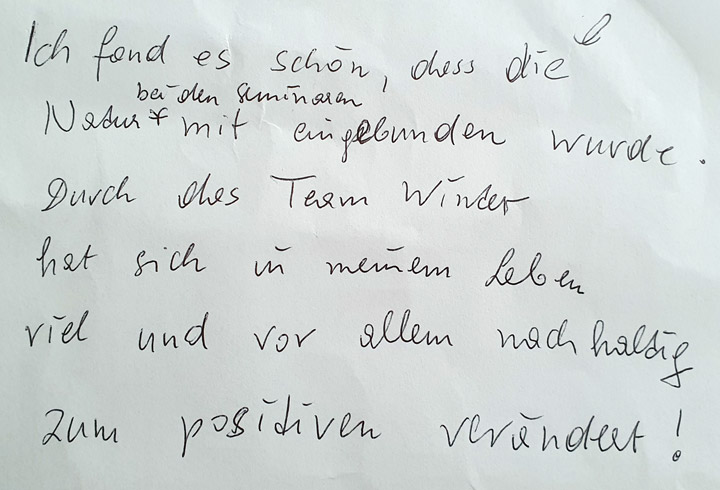 Ich fand es schön, dass die
bei den Seminaren
Natur* mit eingebunden wurde.
Durch das Team Winter
hat sich in meinem Leben
viel und vor allem nachhaltig
zum positiven verändert!